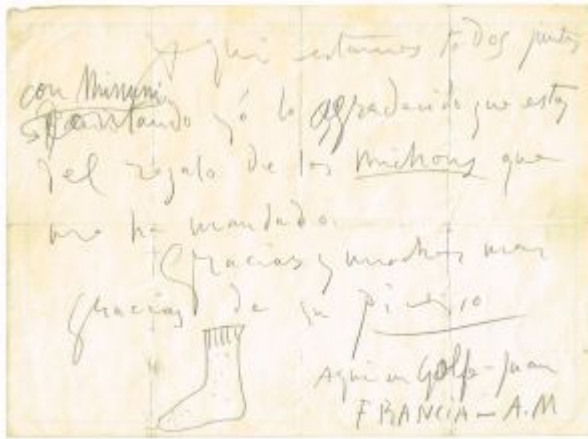 Aqui estamos todos juntos
con Minuni
yó lo agradecido que estoy
del regalo de los michons que
me ha mandado.
Gracias y muchas mas
gracias de su Picasso
Aqui en Golfe-Juan
FRANCIA - A.M